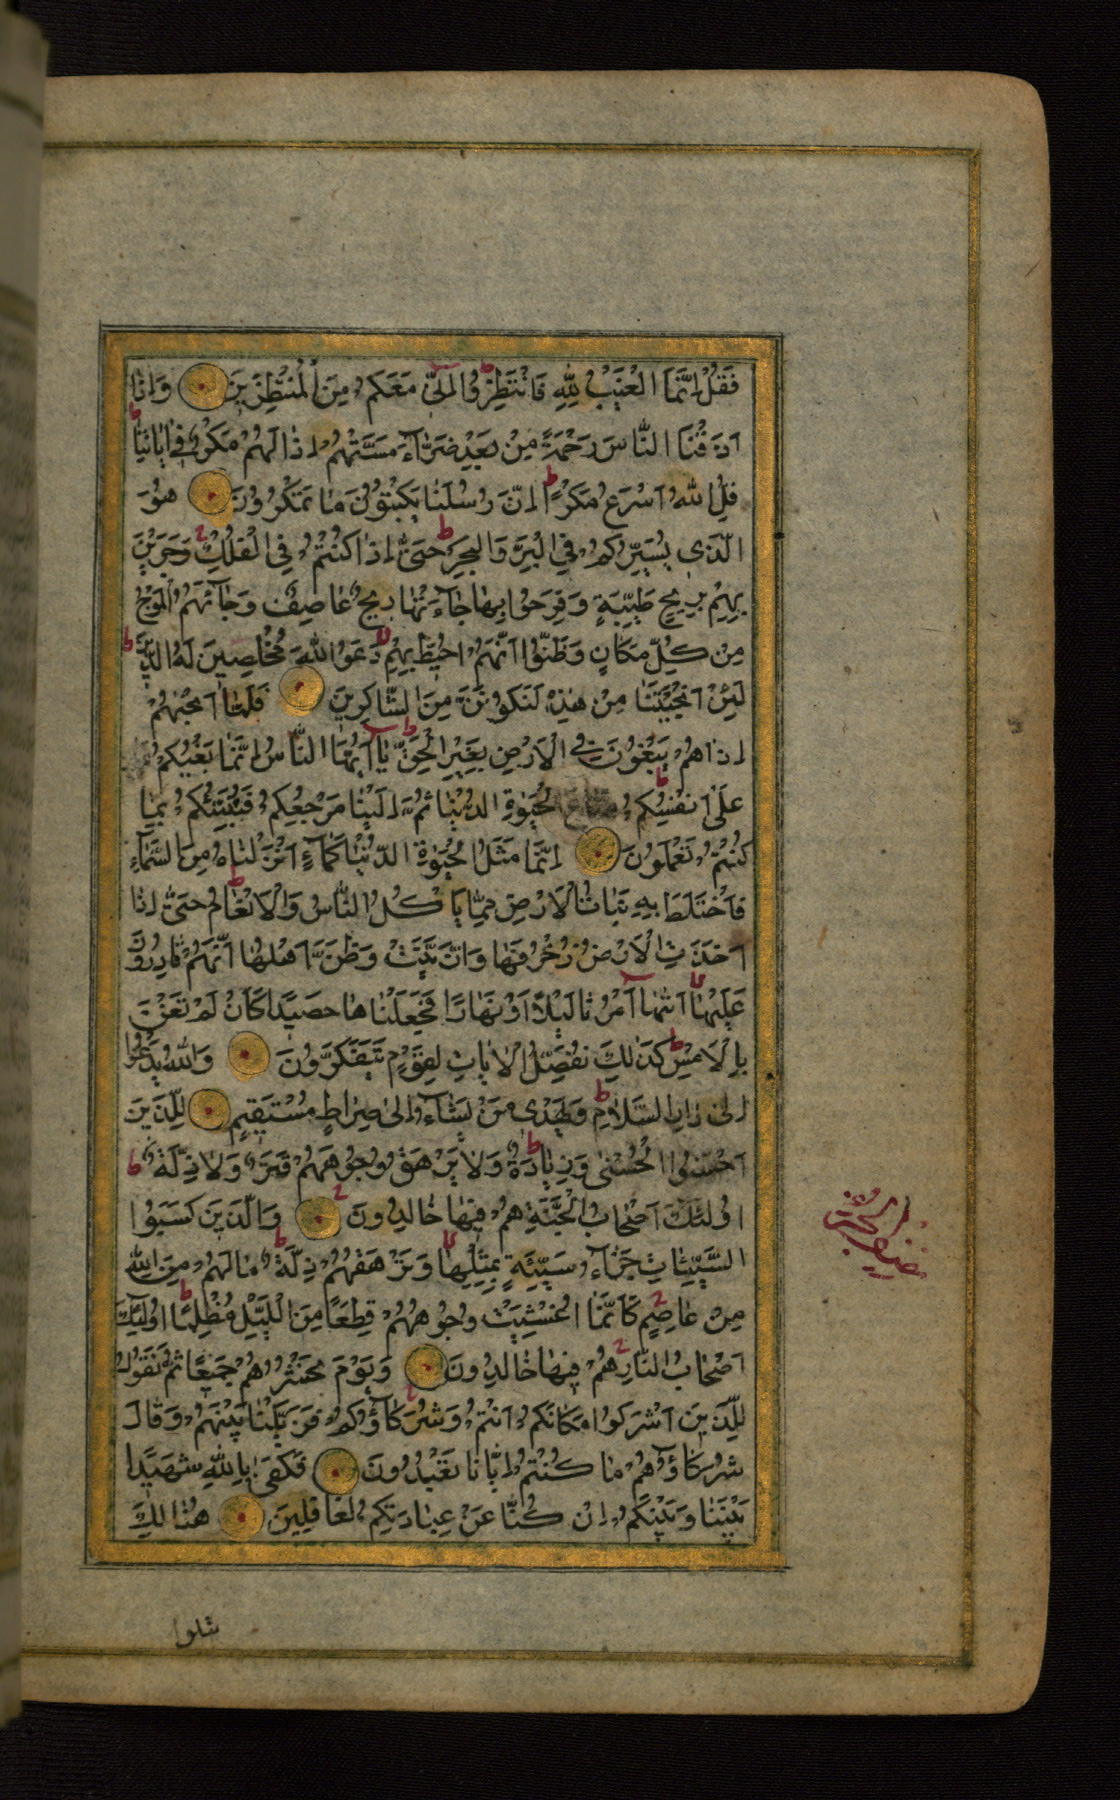 فَقُلْ اِنَّمَا الْغَيْبُ لِلّٰهِ فَانْتَظِرُوا اِنّى مَعَكُمْ مِنَ الْمُنْتَظِرينَ وَاِذَا
اَذَقْنَا النَّاسَ رَحْمَةً مِنْ بَعْدِ ضَرَّاءَ مَسَّتْهُمْ اِذَا لَهُمْ مَكْرٌ فى اٰيَاتِنَا
قُلِ اللّٰهُ اَسْرَعُ مَكْرًا اِنَّ رُسُلَنَا يَكْتُبُونَ مَا تَمْكُرُونَ هُوَ
الَّذى يُسَيِّرُكُمْ فِى الْبَرِّ وَالْبَحْرِ حَتّٰى اِذَا كُنْتُمْ فِى الْفُلْكِ وَجَرَيْنَ
بِهِمْ بِريحٍ طَيِّبَةٍ وَفَرِحُوا بِهَا جَاءَتْهَا ريحٌ عَاصِفٌ وَجَاءَهُمُ الْمَوْجُ
مِنْ كُلِّ مَكَانٍ وَظَنُّوا اَنَّهُمْ اُحيطَ بِهِمْ دَعَوُا اللّٰهَ مُخْلِصينَ لَهُ الدّينَ
لَئِنْ اَنْجَيْتَنَا مِنْ هٰذِهِ لَنَكُونَنَّ مِنَ الشَّاكِرينَ فَلَمَّا اَنْجٰيهُمْ
اِذَا هُمْ يَبْغُونَ فِى الْاَرْضِ بِغَيْرِ الْحَقِّ يَا اَيُّهَا النَّاسُ اِنَّمَا بَغْيُكُمْ
عَلٰى اَنْفُسِكُمْ مَتَاعَ الْحَيٰوةِ الدُّنْيَا ثُمَّ اِلَيْنَا مَرْجِعُكُمْ فَنُنَبِّئُكُمْ بِمَا
كُنْتُمْ تَعْمَلُونَ اِنَّمَا مَثَلُ الْحَيٰوةِ الدُّنْيَا كَمَاءٍ اَنْزَلْنَاهُ مِنَ السَّمَاءِ
فَاخْتَلَطَ بِهِ نَبَاتُ الْاَرْضِ مِمَّا يَاْكُلُ النَّاسُ وَالْاَنْعَامُ حَتّٰى اِذَا
اَخَذَتِ الْاَرْضُ زُخْرُفَهَا وَازَّيَّنَتْ وَظَنَّ اَهْلُهَا اَنَّهُمْ قَادِرُونَ
عَلَيْهَا اَتٰيهَا اَمْرُنَا لَيْلًا اَوْ نَهَارًا فَجَعَلْنَاهَا حَصيدًا كَاَنْ لَمْ تَغْنَ
بِالْاَمْسِ كَذٰلِكَ نُفَصِّلُ الْاٰيَاتِ لِقَوْمٍ يَتَفَكَّرُونَ وَاللّٰهُ يَدْعُوا
اِلٰى دَارِ السَّلَامِ وَيَهْدى مَنْ يَشَاءُ اِلٰى صِرَاطٍ مُسْتَقيمٍ لِلَّذينَ
اَحْسَنُوا الْحُسْنٰى وَزِيَادَةٌ وَلَا يَرْهَقُ وُجُوهَهُمْ قَتَرٌ وَلَا ذِلَّةٌ
اُولٰئِكَ اَصْحَابُ الْجَنَّةِ هُمْ فيهَا خَالِدُونَ وَالَّذينَ كَسَبُوا
السَّيِّئَاتِ جَزَاءُ سَيِّئَةٍ بِمِثْلِهَا وَتَرْهَقُهُمْ ذِلَّةٌ مَا لَهُمْ مِنَ اللّٰهِ
مِنْ عَاصِمٍ كَاَنَّمَا اُغْشِيَتْ وُجُوهُهُمْ قِطَعًا مِنَ اللَّيْلِ مُظْلِمًا اُولٰئِكَ
اَصْحَابُ النَّارِ هُمْ فيهَا خَالِدُونَ وَيَوْمَ نَحْشُرُهُمْ جَميعًا ثُمَّ نَقُولُ
لِلَّذينَ اَشْرَكُوا مَكَانَكُمْ اَنْتُمْ وَشُرَكَاؤُكُمْ فَزَيَّلْنَا بَيْنَهُمْ وَقَالَ
شُرَكَاؤُهُمْ مَا كُنْتُمْ اِيَّانَا تَعْبُدُونَ فَكَفٰى بِاللّٰهِ شَهيدًا
بَيْنَنَا وَبَيْنَكُمْ اِنْ كُنَّا عَنْ عِبَادَتِكُمْ لَغَافِلينَ هُنَالِكَ
تبلوا